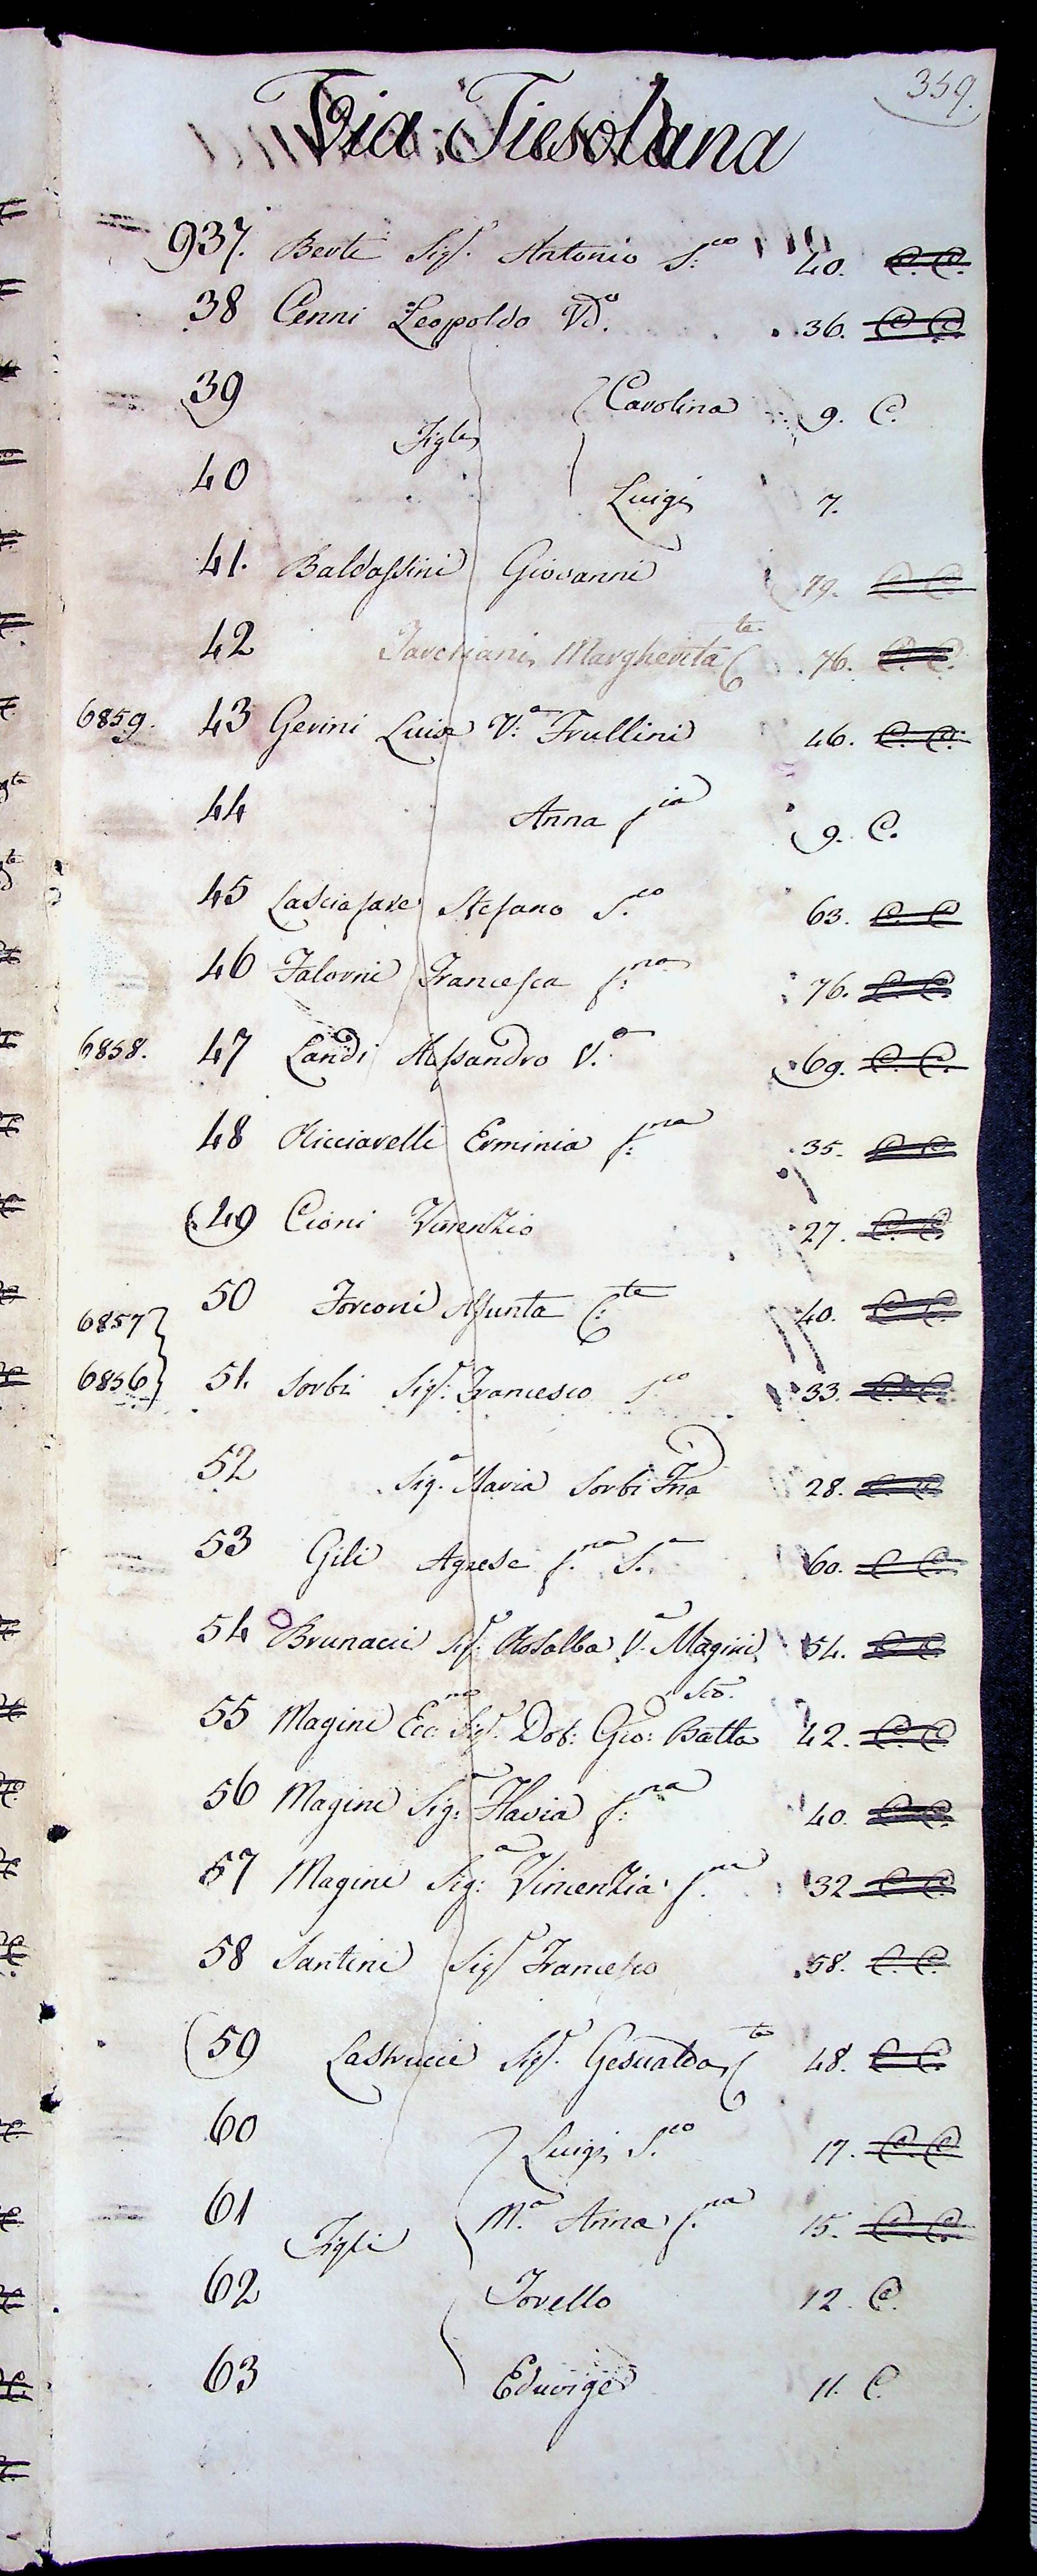 359.
Via Fiesolana
937. Berti Sig.r Antonio S.co 40. C. C.
38 Cenni Leopoldo Vo. 36. C. C.
39 Carolina 9. C.
Figli
40 Luigi 7.
41. Baldassini Giovanni 79. C. C.
42 Margherita C.te 76. C. C.
6859. 43 Gerini Luisa V.a Frullini 46. C. C.
44 Anna f.ia 9. C.
45 Lasciafare Stefano S.co 63. C. C.
46 Falorni Francesca f.na 76. C. C.
6858. 47 Landi Alessandro V.o 69. C. C.
48 Ricciarelli Erminia f.na 35. C. C.
49 Cioni Vincenzio 27. C. C.
50 Forconi Assunta C.te 40. C. C.
6857
6856 51. Sorbi Sig.r Francesco S.co 33. C. C.
52 Sig.a Maria Sorbi Fna 28. C. C.
53 Gili Agnese f.na S.a 60. C. C.
54 Brunacci Sig.a Rosalba V.a Magini 54. C. C.
55 Magini Ecc.mo Sig.r Dot: Gio: Batta Sco. 42. C. C.
56 Magini Sig.a Flavia f.na 40. C. C.
57 Magini Sig.a Vincenzia f.na 32 C. C.
58 Santini Sig.r Francesco 58. C. C.
59 Lastrucci Sig.r Gesualda C.te 48. C. C.
60 Luigi S.co 17. C. C.
61 M.a Anna f.na 15. C. C.
Figli
62 Torello 12. C.
63 Eduvige 11. C.